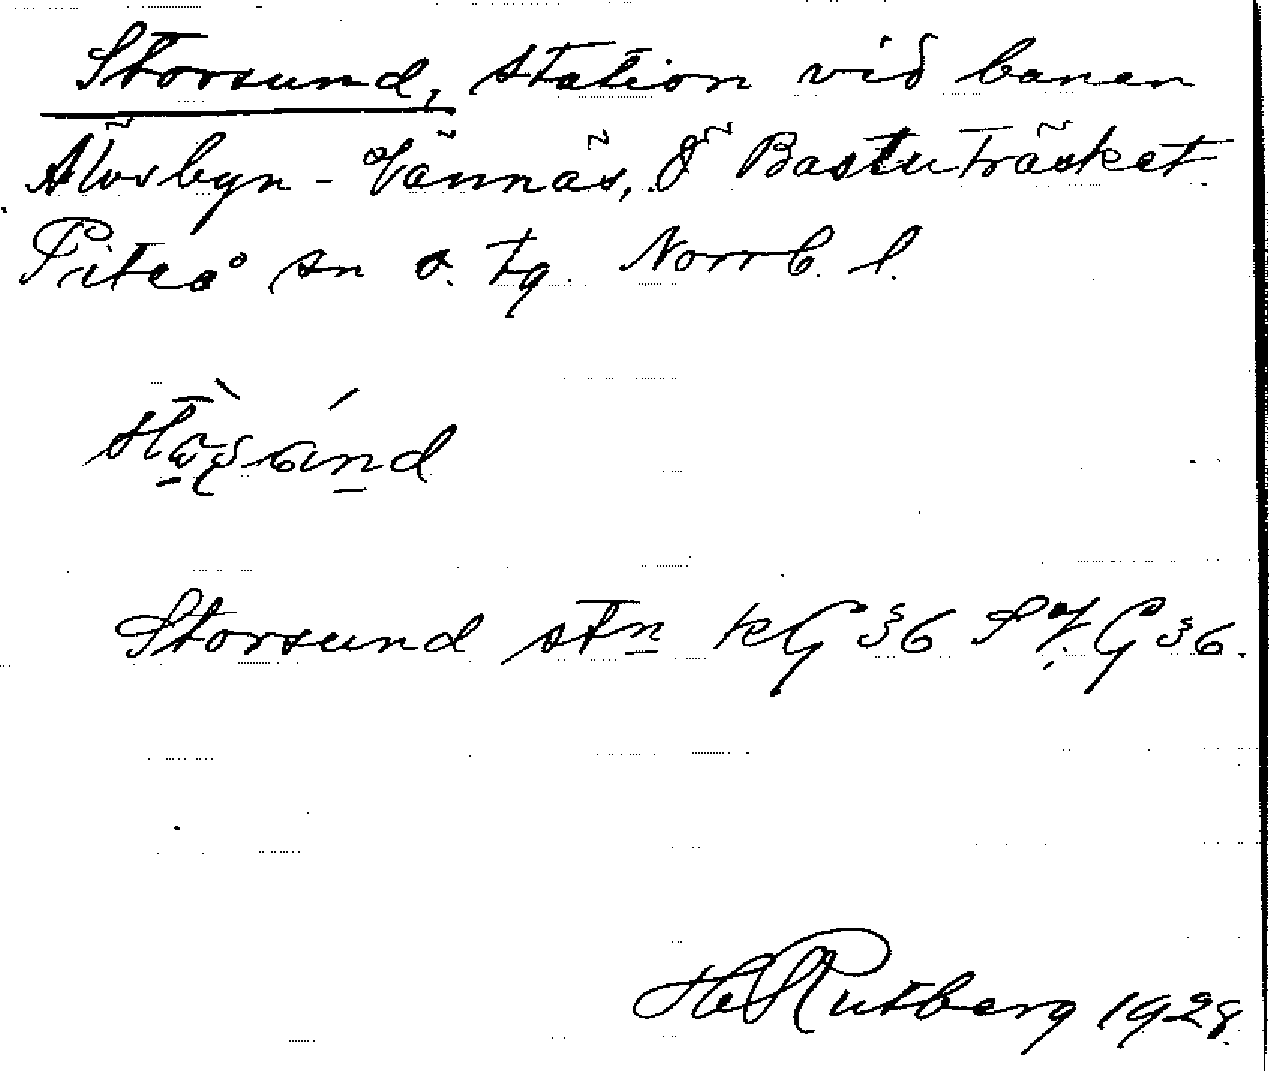 Storsund, station vid banan
Älvsbyn - Vännäs, Ö Bastuträsket
Piteå sn o. tg. Norrb. l.
Storsund stn kG 36 St. G 36.
Hj Rutberg 1928